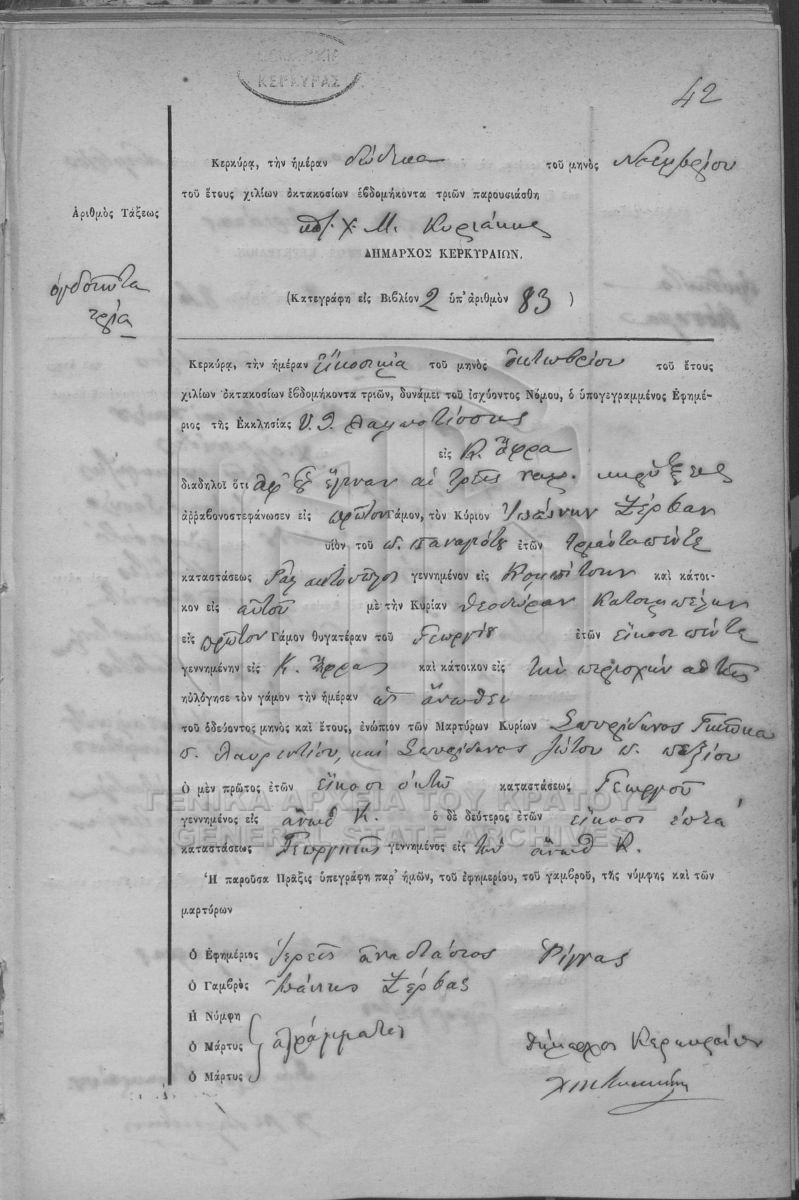 ΚΕΡΚΥΡΑΣ
42
Κερκύρα, τὴν ἡμέραν δώδεκα τοῦ μηνὸς Νοεμβρίου
τοῦ ἔτους χιλίων ὀκτακοσίων ἑβδομήκοντα τριῶν παρουσιάσθη
Ἀριθμὸς Τάξεως
Χ. Μ. Κυριάκης
ΔΗΜΑΡΧΟΣ ΚΕΡΚΥΡΑΙΩΝ.
ὀγδοῆντα
τρία
(Κατεγράφη εἰς Βιβλίον 2 ὑπ' ἀριθμὸν 83)
Κερκύρα, τὴν ἡμέραν εἴκοσι μία τοῦ μηνὸς ὀκτωβρίου τοῦ ἔτους
χιλίων ὀκτακοσίων ἑβδομήκοντα τριῶν, δυνάμει τοῦ ἰσχύοντος Νόμου, ὁ ὑπογεγραμμένος Ἐφημέ-
ριος τῆς Ἐκκλησίας Υ. Θ.
εἰς Κ.
διαδηλοῖ ὅτι ἀφ' οὗ ἔγιναν αἱ τρεῖς κηρύξεις
ἀρραβονοστεφάνωσεν εἰς πρῶτον Γάμον, τὸν Κύριον Ἰωάννην Ζέρβαν
υἱὸν τοῦ π. παναγιότου ἐτῶν τριάντα πέντε
καταστάσεως γεννημένον εἰς Κομπίτσην καὶ κάτοι-
κον εἰς αὐτοῦ μὲ τὴν Κυρίαν θεοδώραν
εἰς πρῶτον Γάμον θυγατέραν τοῦ Γεωργίου ἐτῶν εἴκοσι πέντε
γεννημένην εἰς Κ. καὶ κάτοικον εἰς τὴν περιοχὴν αὐτῆς
ηὐλόγησε τὸν γάμον τὴν ἡμέραν ὡς ἄνωθεν
τοῦ ὁδεύοντος μηνὸς καὶ ἔτους, ἐνώπιον τῶν Μαρτύρων Κυρίων Σπυρίδωνος
π. Λαυρεντίου, καὶ Σπυρίδωνος π.
Ὁ μὲν πρῶτος ἐτῶν εἴκοσι ὀκτὼ καταστάσεως Γεωργοῦ
ΓΕΝΙΚΑ ΑΡΧΕΙΑ ΤΟΥ ΚΡΑΤΟΥΣ
γεννημένος εἰς ἄνωθ Κ. ὁ δὲ δεύτερος ἐτῶν εἴκοσι ἑπτά
GENERAL STATE ARCHIVES
καταστάσεως Γεωργικῆς γεννημένος εἰς τὴν ἄνωθ Κ.
Ἡ παροῦσα Πρᾶξις ὑπεγράφη παρ' ἡμῶν, τοῦ ἐφημερίου, τοῦ γαμβροῦ, τῆς νύμφης καὶ τῶν
μαρτύρων
Ὁ Ἐφημέριος Ἱερεὺς ἀναστάσιος Ρίγγας
Ὁ Γαμβρὸς Ἰωάννης Ζέρβας
Ἡ Νύμφη
Ὁ Μάρτυς ἀγράμματοι
Ὁ Μάρτυς
Δήμαρχος Κερκυραίων